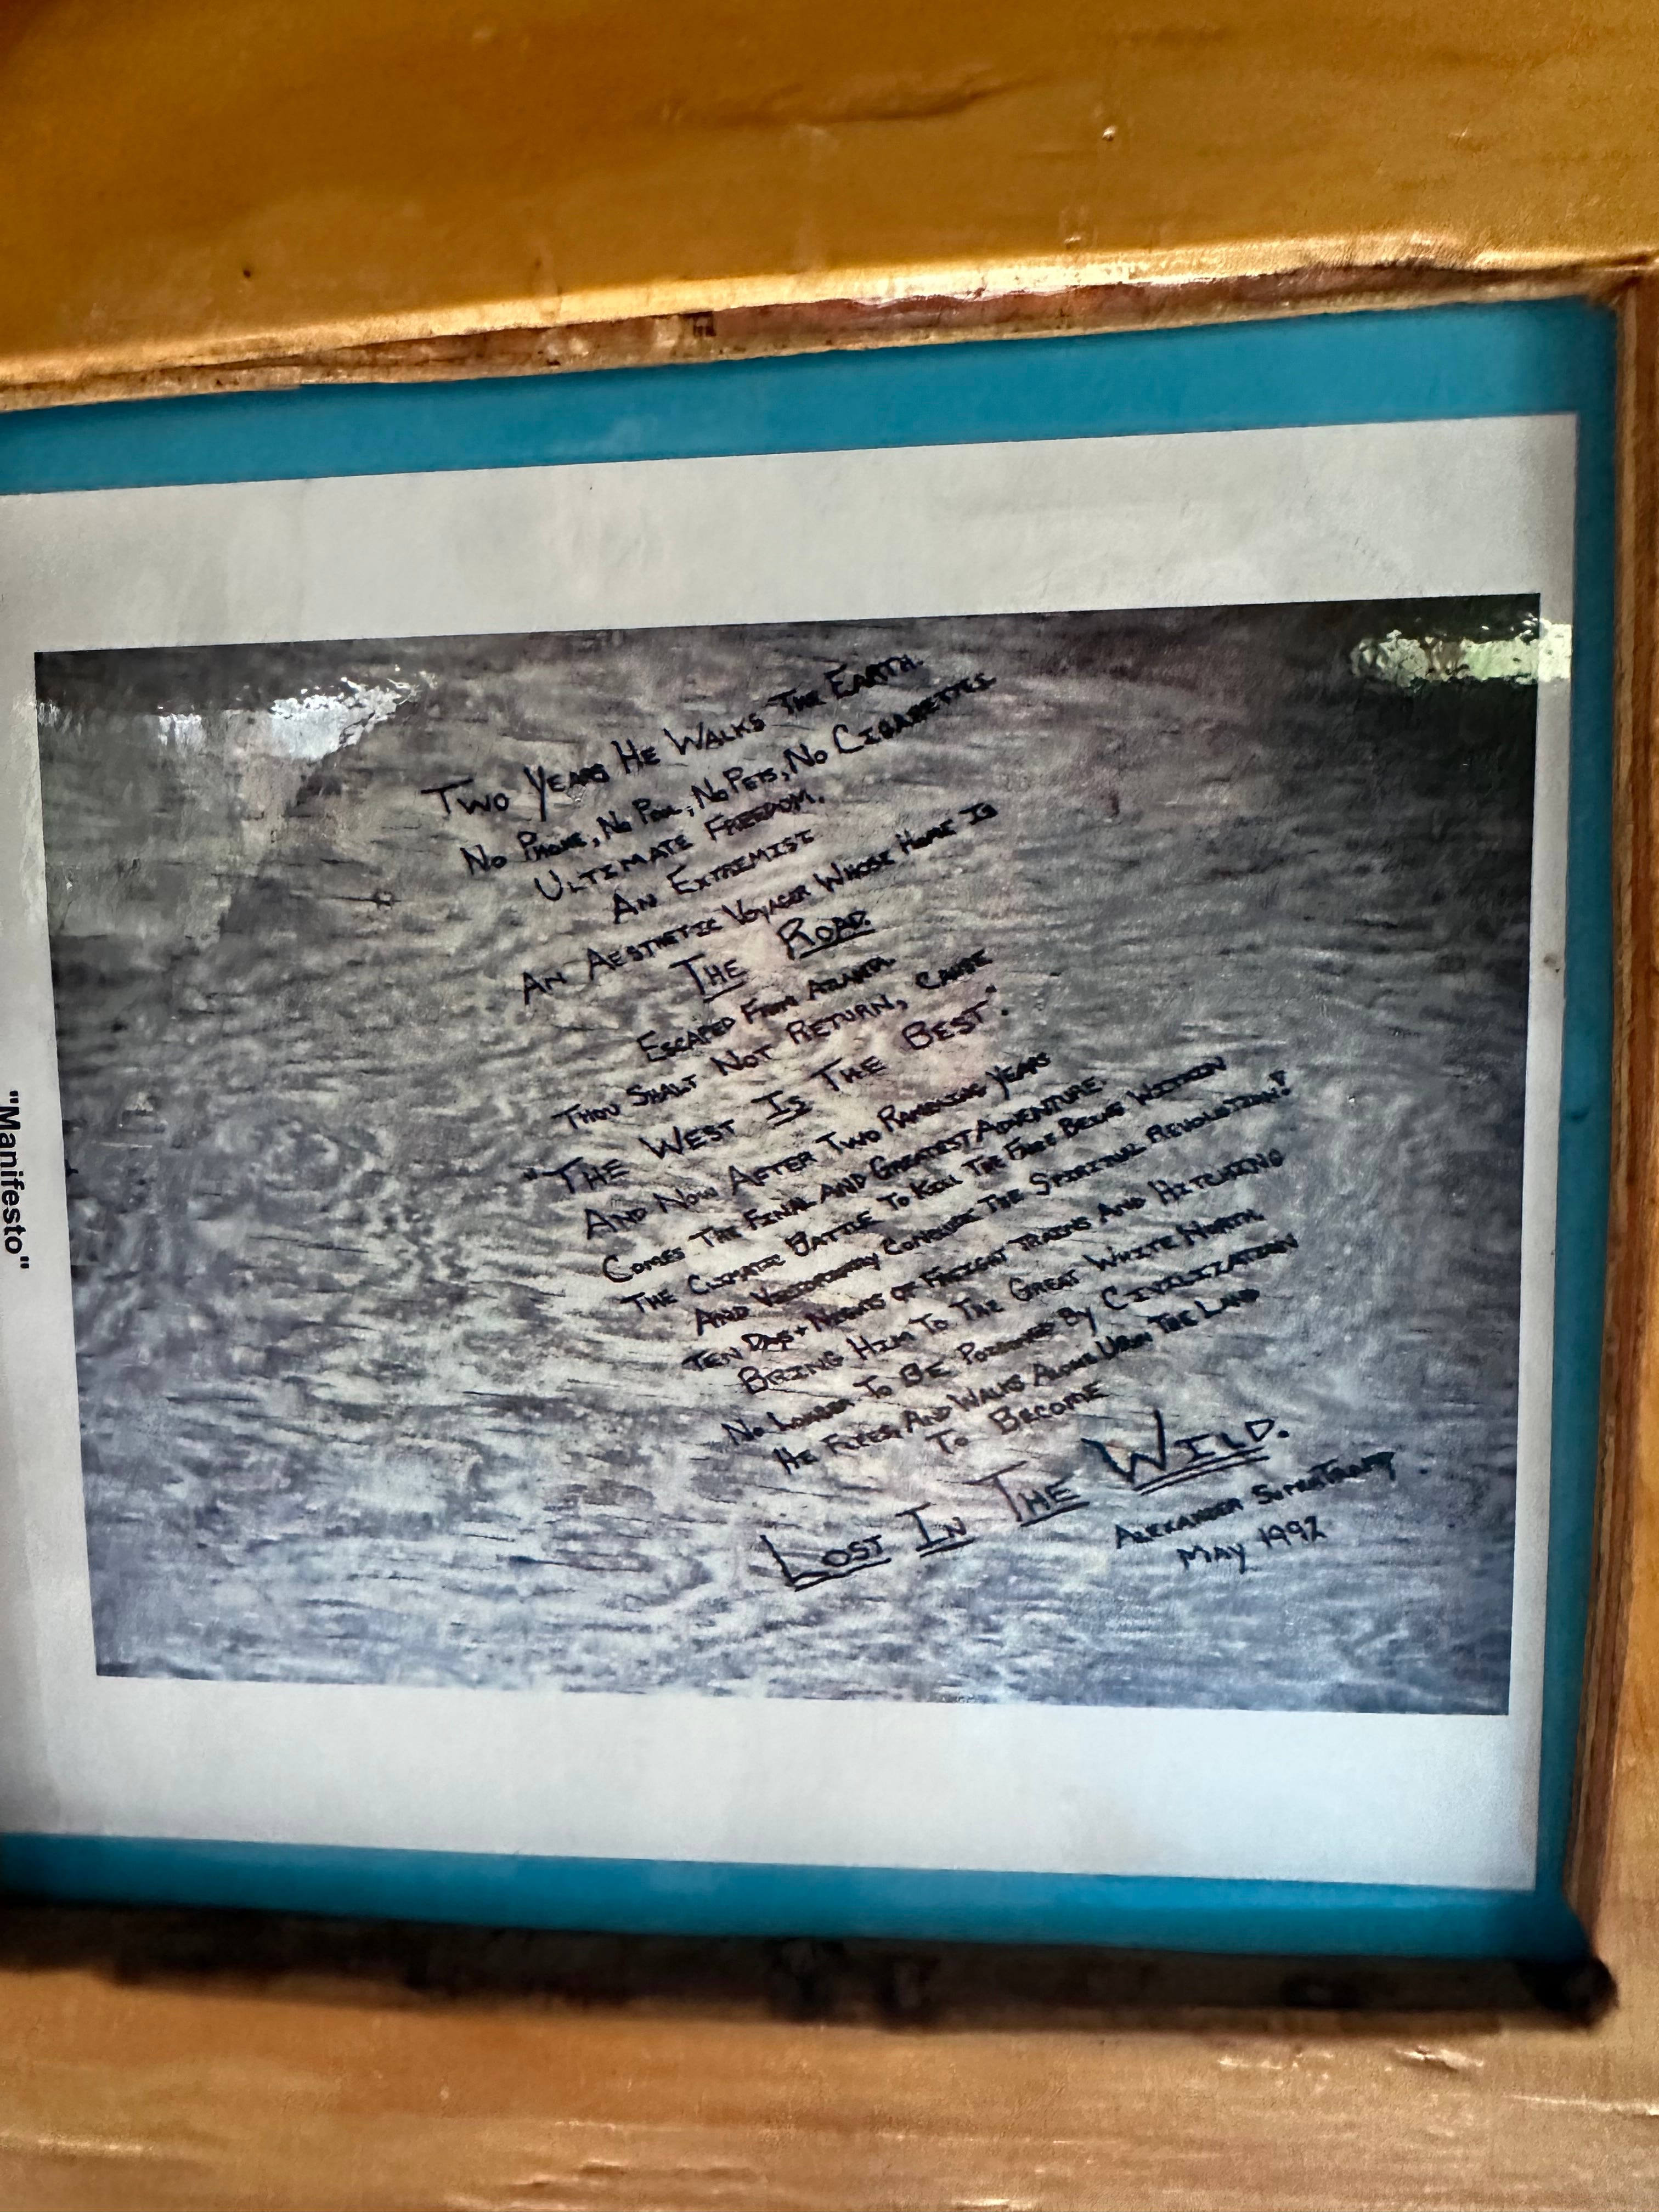 Two Years He Walks The Earth.
No Phone, No Pool, No Pets, No Cigarettes.
Ultimate Freedom.
An Extremist
An Aesthetic Voyager Whose Home Is
The Road.
Escaped From Atlanta.
Thou Shalt Not Return, Cause
"The West Is The Best".
And Now After Two Rambling Years
Comes The Final And Greatest Adventure.
The Climatic Battle To Kill The False Being Within
And Victoriously Conclude The Spiritual Revolution!
Ten Days + Nights of Freight Trains And Hitching
Bring Him To The Great White North.
No Longer To Be Poisoned By Civilization
He Flees, And Walks Alone Upon The Land
To Become
Lost In The Wild.
Alexander SuperTramp
May 1992
"Manifesto"